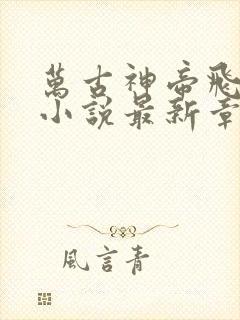 萬古神帝飛
小說最新章
風言青